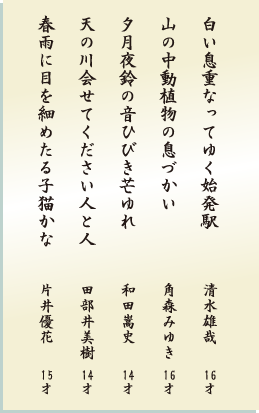 白い息重なってゆく始発駅　清水雄哉　16才
山の中動植物の息づかい　角森みゆき　16才
夕月夜鈴の音ひびき芒ゆれ　和田嵩史　14才
天の川会せてください人と人　田部井美樹　14才
春雨に目を細めたる子猫かな　片井優花　15才